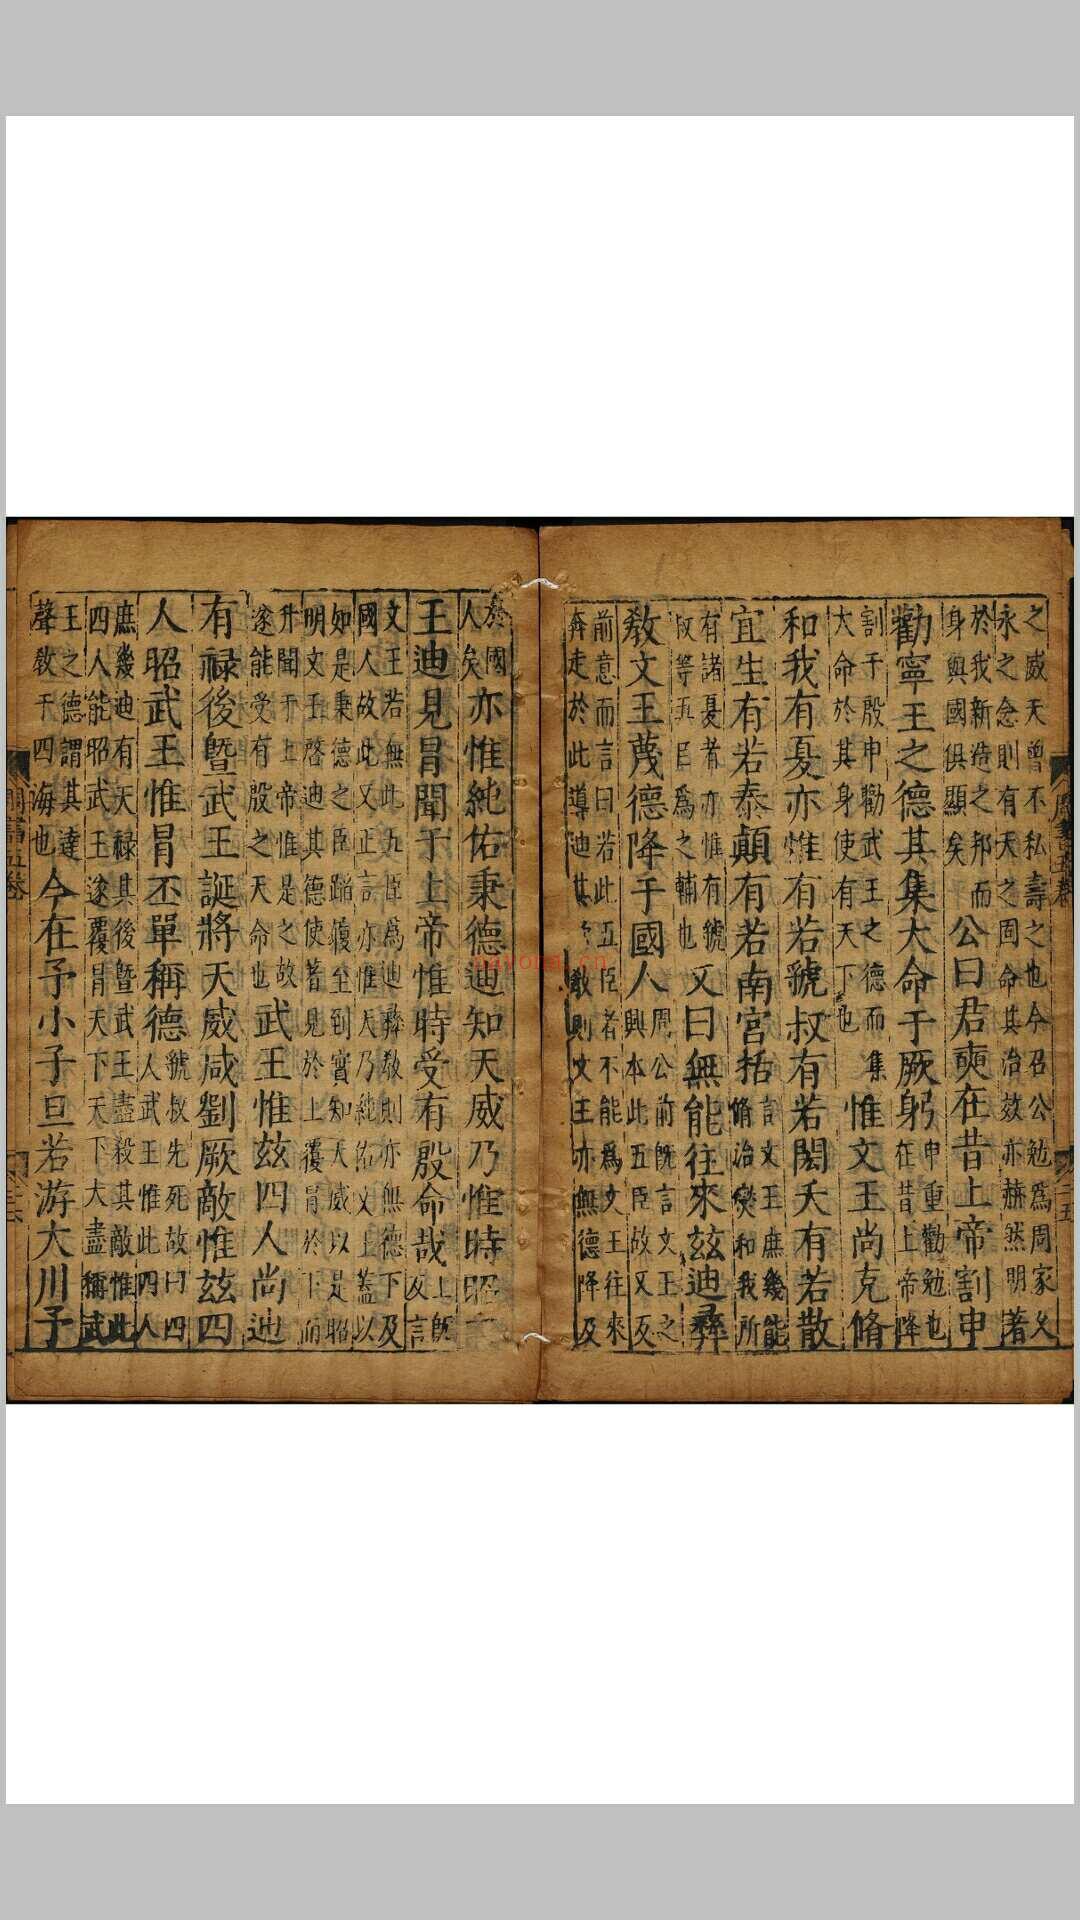 之威天曾不私壽之也今召公勉爲周家久
永之念則有天之固命其治效亦赫然明著
於我新造之邦而
身與國俱顯矣
公曰君奭在昔上帝割申
勸寧王之德其集大命于厥躬
申重勸勉也
在昔上帝降
割于殷申勸武王之德而集
大命於其身使有天下也
惟文王尚克脩
和我有夏亦惟有若虢叔有若閎夭有若散
宜生有若泰顛有若南宮括
言文王庶幾能
脩治燮和我所
有諸夏者亦惟有虢
叔等五臣爲之輔也
又曰無能往來茲迪彝
教文王蔑德降于國人
周公前既言文王之
興本此五臣故又反
前意而言曰若此五臣者不能爲文王往來
奔走於此導迪其 教則文王亦無德降及
於國
人矣
亦惟純佑秉德迪知天威乃惟時昭
王迪見冒聞于上帝惟時受有殷命哉
上既
反言
文王若無此五臣爲迪彝教則亦無德下及
國人故此又正言亦惟天乃純佑文王蓋以
如是秉德之臣蹈履至到實知天威以是昭
明文王啓迪其德使著見於上覆冒於下而
升聞于上帝惟是之故
遂能受有殷之天命也
武王惟茲四人尚迪
有祿後暨武王誕將天威咸劉厥敵惟茲四
人昭武王惟冒丕單稱德
虢叔先死故曰四
人武王惟此四人
庶幾迪有天祿其後暨武王盡殺其敵惟此
四人能昭武王遂覆冒天下天下大盡稱武
王之德謂其達
聲教于四海也
今在予小子旦若游大川予